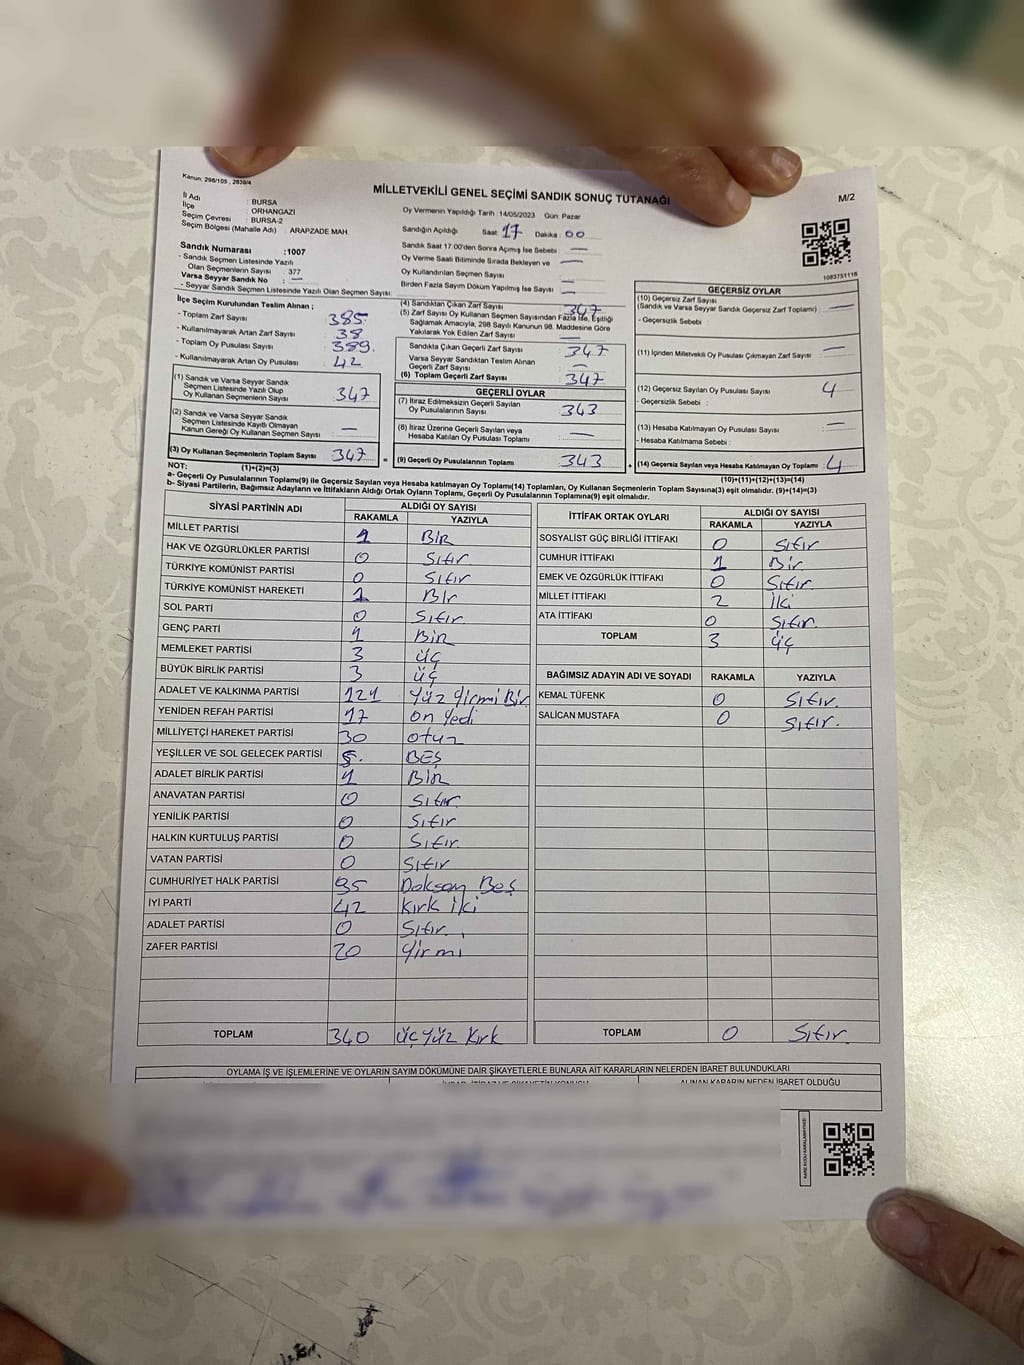 Kanun: 298/105 , 2839/4
MİLLETVEKİLİ GENEL SEÇİMİ SANDIK SONUÇ TUTANAĞI
M/2
İl Adı : BURSA
İlçe : ORHANGAZİ
Seçim Çevresi : BURSA-2
Seçim Bölgesi (Mahalle Adı) : ARAPZADE MAH.
Oy Vermenin Yapıldığı Tarih :14/05/2023 Gün: Pazar
Sandığın Açıldığı Saat 17 Dakika : 00
Sandık Saat 17:00'den Sonra Açımış İse Sebebi : —
Oy Verme Saati Bitiminde Sırada Bekleyen ve —
Oy Kullandırılan Seçmen Sayısı
Birden Fazla Sayım Döküm Yapılmış İse Sayısı : —
1083751116
Sandık Numarası :1007
- Sandık Seçmen Listesinde Yazılı
Olan Seçmenlerin Sayısı : 377
Varsa Seyyar Sandık No : —
- Seyyar Sandık Seçmen Listesinde Yazılı Olan Seçmen Sayısı:
İlçe Seçim Kurulundan Teslim Alınan ;
- Toplam Zarf Sayısı 385
- Kullanılmayarak Artan Zarf Sayısı 38
- Toplam Oy Pusulası Sayısı 389.
- Kullanılmayarak Artan Oy Pusulası 42
(1) Sandık ve Varsa Seyyar Sandık
Seçmen Listesinde Yazılı Olup
Oy Kullanan Seçmenlerin Sayısı 347
(2) Sandık ve Varsa Seyyar Sandık
Seçmen Listesinde Kayıtlı Olmayan
Kanun Gereği Oy Kullanan Seçmen Sayısı —
(3) Oy Kullanan Seçmenlerin Toplam Sayısı 347
(1)+(2)=(3)
(4) Sandıktan Çıkan Zarf Sayısı 347
(5) Zarf Sayısı Oy Kullanan Seçmen Sayısından Fazla İse, Eşitliği
Sağlamak Amacıyla, 298 Sayılı Kanunun 98. Maddesine Göre
Yakılarak Yok Edilen Zarf Sayısı —
Sandıkta Çıkan Geçerli Zarf Sayısı 347
Varsa Seyyar Sandıktan Teslim Alınan
Geçerli Zarf Sayısı —
(6) Toplam Geçerli Zarf Sayısı 347
GEÇERLİ OYLAR
(7) İtiraz Edilmeksizin Geçerli Sayılan
Oy Pusulalarının Sayısı 343
(8) İtiraz Üzerine Geçerli Sayılan veya
Hesaba Katılan Oy Pusulası Toplamı —
= (9) Geçerli Oy Pusulalarının Toplamı 343 +
GEÇERSİZ OYLAR
(10) Geçersiz Zarf Sayısı
(Sandık ve Varsa Seyyar Sandık Geçersiz Zarf Toplamı) : —
- Geçersizlik Sebebi :
(11) İçinden Milletvekili Oy Pusulası Çıkmayan Zarf Sayısı —
(12) Geçersiz Sayılan Oy Pusulası Sayısı 4
- Geçersizlik Sebebi :
(13) Hesaba Katılmayan Oy Pusulası Sayısı —
- Hesaba Katılmama Sebebi :
(14) Geçersiz Sayılan veya Hesaba Katılmayan Oy Toplamı 4
(10)+(11)+(12)+(13)=(14)
NOT:
a- Geçerli Oy Pusulalarının Toplamı(9) ile Geçersiz Sayılan veya Hesaba Katılmayan Oy Toplamı(14) Toplamları, Oy Kullanan Seçmenlerin Toplam Sayısına(3) eşit olmalıdır. (9)+(14)=(3)
b- Siyasi Partilerin, Bağımsız Adayların ve İttifakların Aldığı Ortak Oyların Toplamı, Geçerli Oy Pusulalarının Toplamına(9) eşit olmalıdır.
SİYASİ PARTİNİN ADI ALDIĞI OY SAYISI
RAKAMLA YAZIYLA
MİLLET PARTİSİ 1 BİR
HAK VE ÖZGÜRLÜKLER PARTİSİ 0 Sıfır
TÜRKİYE KOMÜNİST PARTİSİ 0 Sıfır
TÜRKİYE KOMÜNİST HAREKETİ 1 Bir
SOL PARTİ 0 Sıfır
GENÇ PARTİ 1 BİR
MEMLEKET PARTİSİ 3 üç
BÜYÜK BİRLİK PARTİSİ 3 üç
ADALET VE KALKINMA PARTİSİ 121 Yüz Yirmi Bir
YENİDEN REFAH PARTİSİ 17 on Yedi
MİLLİYETÇİ HAREKET PARTİSİ 30 otuz
YEŞİLLER VE SOL GELECEK PARTİSİ 5. BEŞ
ADALET BİRLİK PARTİSİ 1 BİR
ANAVATAN PARTİSİ 0 Sıfır
YENİLİK PARTİSİ 0 Sıfır
HALKIN KURTULUŞ PARTİSİ 0 Sıfır.
VATAN PARTİSİ 0 Sıfır
CUMHURİYET HALK PARTİSİ 95 Doksan Beş
İYİ PARTİ 42 Kırk İki
ADALET PARTİSİ 0 Sıfır.
ZAFER PARTİSİ 20 Yirmi
TOPLAM 340 üç Yüz Kırk
İTTİFAK ORTAK OYLARI ALDIĞI OY SAYISI
RAKAMLA YAZIYLA
SOSYALİST GÜÇ BİRLİĞİ İTTİFAKI 0 Sıfır
CUMHUR İTTİFAKI 1 Bir
EMEK VE ÖZGÜRLÜK İTTİFAKI 0 Sıfır
MİLLET İTTİFAKI 2 İki
ATA İTTİFAKI 0 Sıfır.
TOPLAM 3 üç
BAĞIMSIZ ADAYIN ADI VE SOYADI RAKAMLA YAZIYLA
KEMAL TÜFENK 0 Sıfır.
SALİCAN MUSTAFA 0 Sıfır.
TOPLAM 0 Sıfır.
OYLAMA İŞ VE İŞLEMLERİNE VE OYLARIN SAYIM DÖKÜMÜNE DAİR ŞİKAYETLERLE BUNLARA AİT KARARLARIN NELERDEN İBARET BULUNDUKLARI
ALINAN KARARIN NEDEN İBARET OLDUĞU